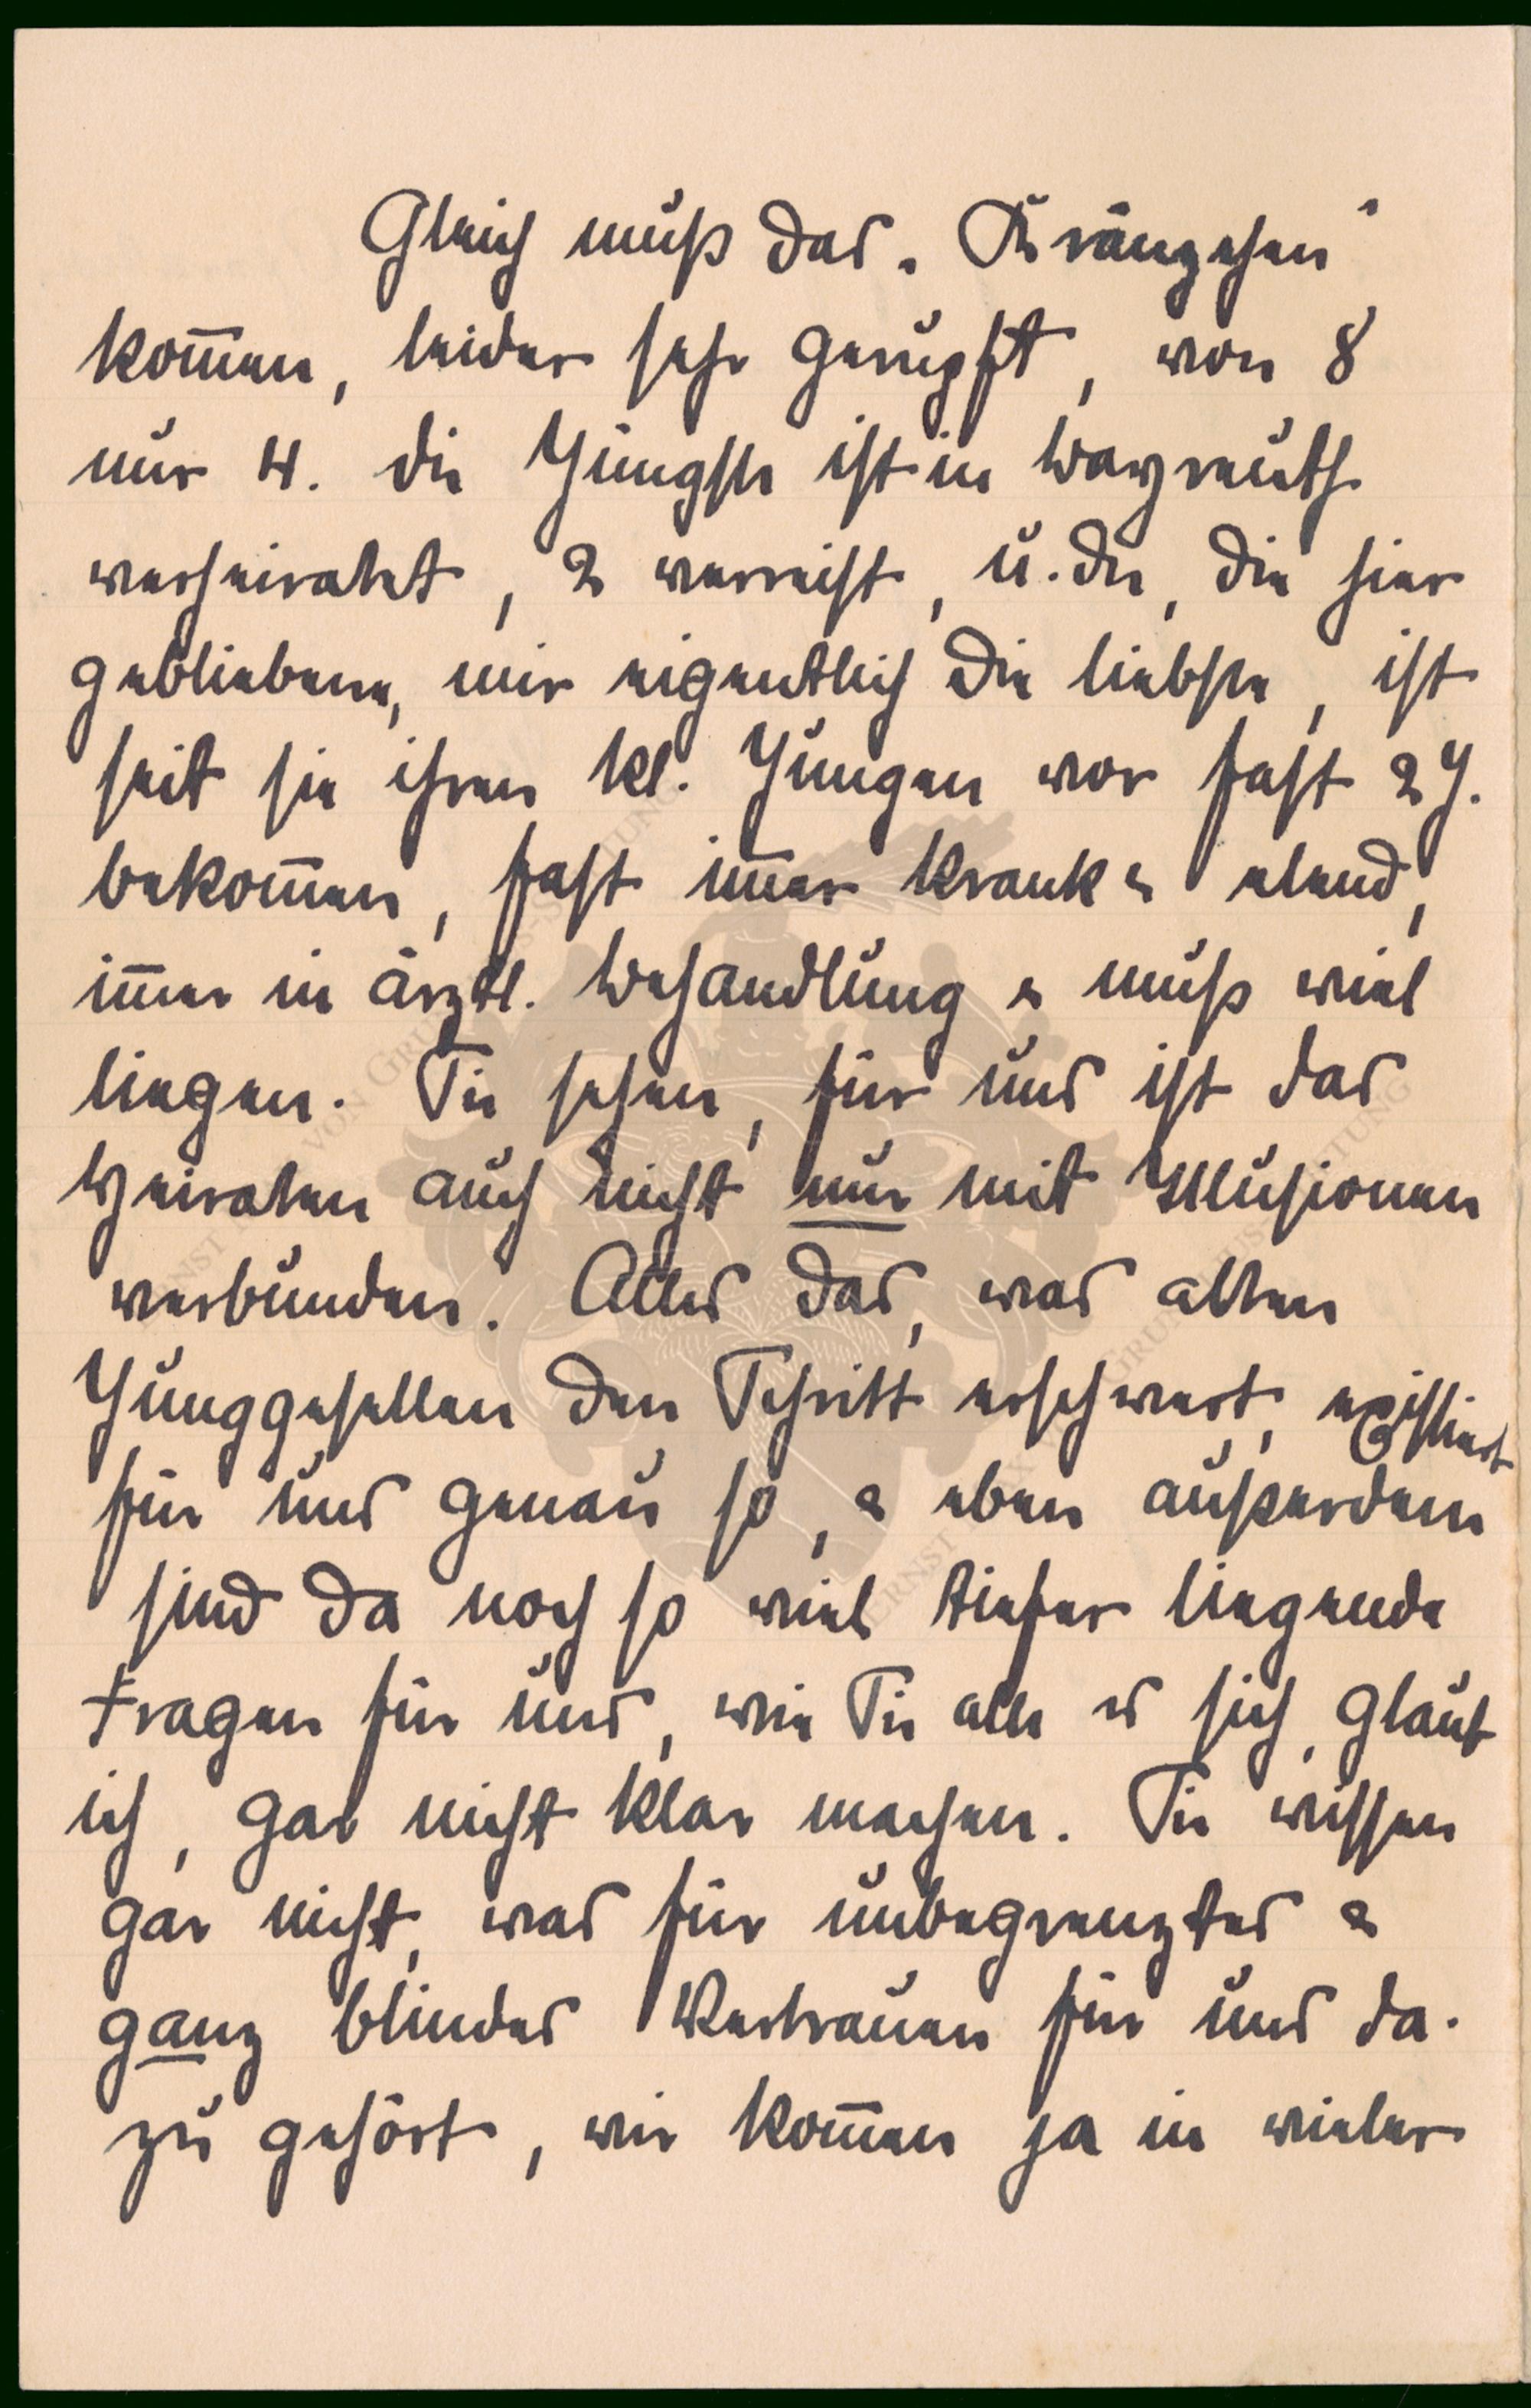 Gleich muß das „Kränzchen“
kom̅en, leider sehr gerupft, von 8
nur 4. die Jüngste ist in Bayreuth
verheiratet, 2 verreist, u. die, die hier
gebliebene, mir eigentlich die liebste, ist
seit sie ihren kl. Jungen vor fast 2 J.
bekom̅en, fast im̅er krank & elend,
im̅er in ärztl. Behandlung & muß viel
liegen. Sie sehen, für uns ist das
Heiraten auch nicht nur mit Illusionen
verbunden. Alles das, was alten
Junggesellen den Schritt erschwert, existiert
für uns genau so, & eben außerdem
sind da noch so viel tiefer liegende
Fragen für uns, wie Sie alle es sich, glaub
ich, gar nicht klar machen. Sie wissen
gar nicht, was für unbegrenztes &
ganz blindes Vertrauen für uns da-
zu gehört, wir kom̅en ja in vieler